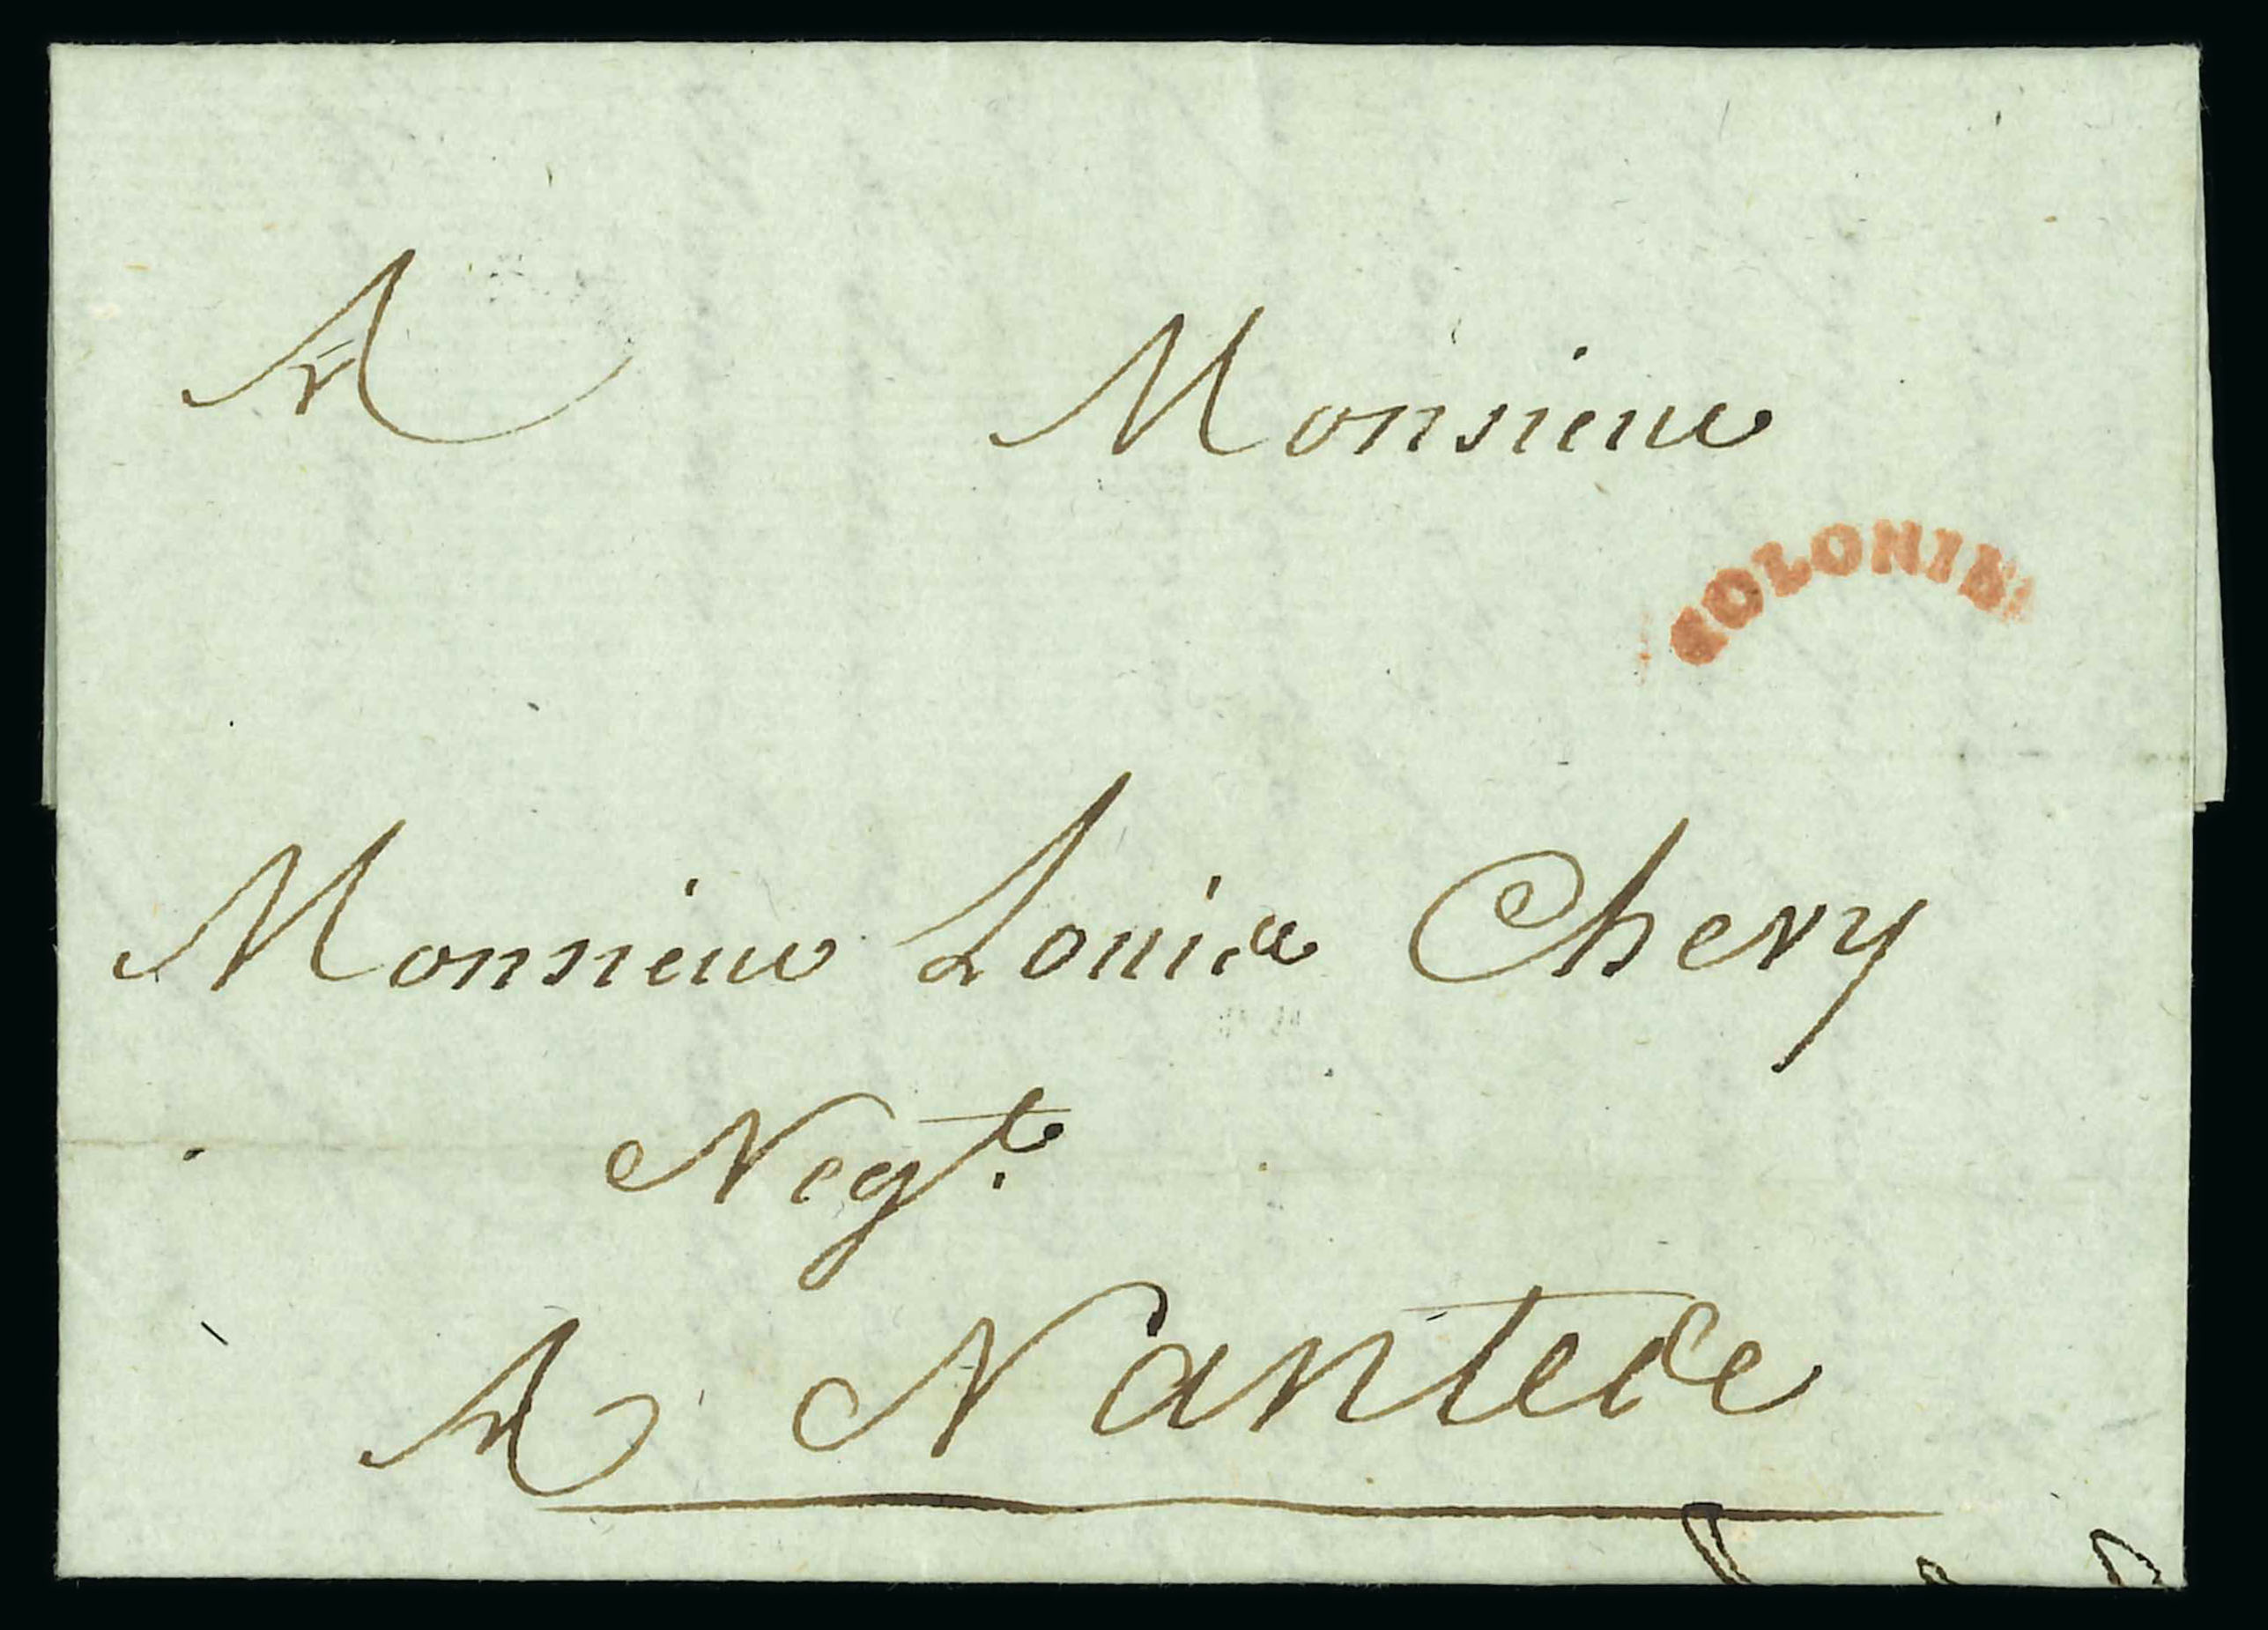 A Monsieur
COLONIES
Monsieur Louis Chevy
Negt.
A Nantes